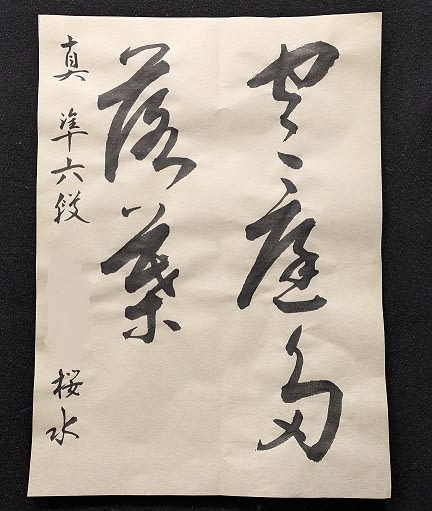 空庭多
落葉
真 準六段 桜水